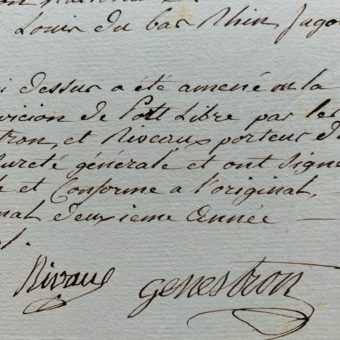 Louis du bas Rhin, Jago
i dessus a été amené ou la
vicion de Port Libre par les
tron, et Riveaux porteur d
ureté generale et ont signe
e et Conforme a l'original,
nal deuxieme année
Rivaux genestron